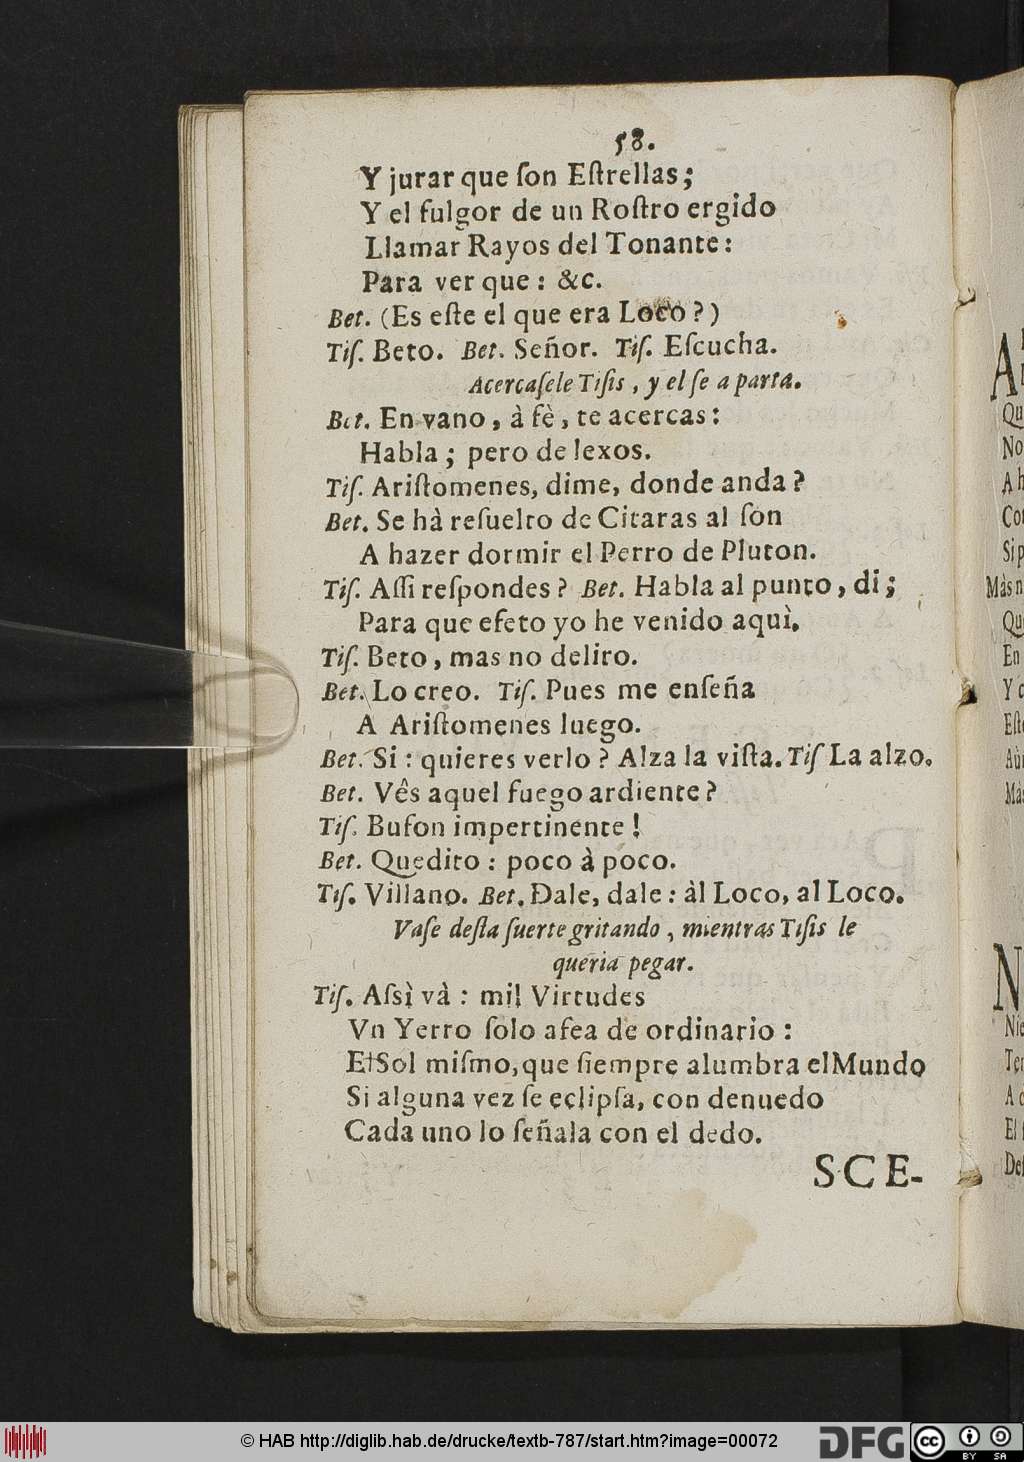 58.
Y jurar que ſon Eſtrellas;
Y el fulgor de un Roſtro ergido
Llamar Rayos del Tonante:
Para ver que: &c.
Bet. (Es eſte el que era Loco?)
Tiſ. Beto. Bet. Señor. Tiſ. Eſcucha.
Acercaſele Tiſis, y el ſe a parta.
Bet. En vano, à fè, te acercas:
Habla; pero de lexos.
Tiſ. Ariſtomenes, dime, donde anda?
Bet. Se hà reſuelto de Citaras al ſon
A hazer dormir el Perro de Pluton.
Tiſ. Aſſi reſpondes? Bet. Habla al punto, di;
Para que efeto yo he venido aquì.
Tiſ. Beto, mas no deliro.
Bet. Lo creo. Tiſ. Pues me enſeña
A Ariſtomenes luego.
Bet. Si: quieres verlo? Alza la viſta. Tiſ La alzo.
Bet. Vês aquel fuego ardiente?
Tiſ. Bufon impertinente!
Bet. Quedito: poco à poco.
Tiſ. Villano. Bet. Dale, dale: àl Loco, al Loco.
Vaſe deſta ſuerte gritando, mientras Tiſis le
queria pegar.
Tiſ. Aſsì và: mil Virtudes
Vn Yerro ſolo afea de ordinario:
El Sol miſmo, que ſiempre alumbra el Mundo
Si alguna vez ſe eclipſa, con denuedo
Cada uno lo ſeñala con el dedo.
SCE-
A
Qu
No
A h
Co
Si p
Màs n
Qu
En
Y c
Eſte
Aùn
Más
N
Nie
Ter
A c
El
Deſ
© HAB http://diglib.hab.de/drucke/textb-787/start.htm?image=00072
DFG
cc
BY SA